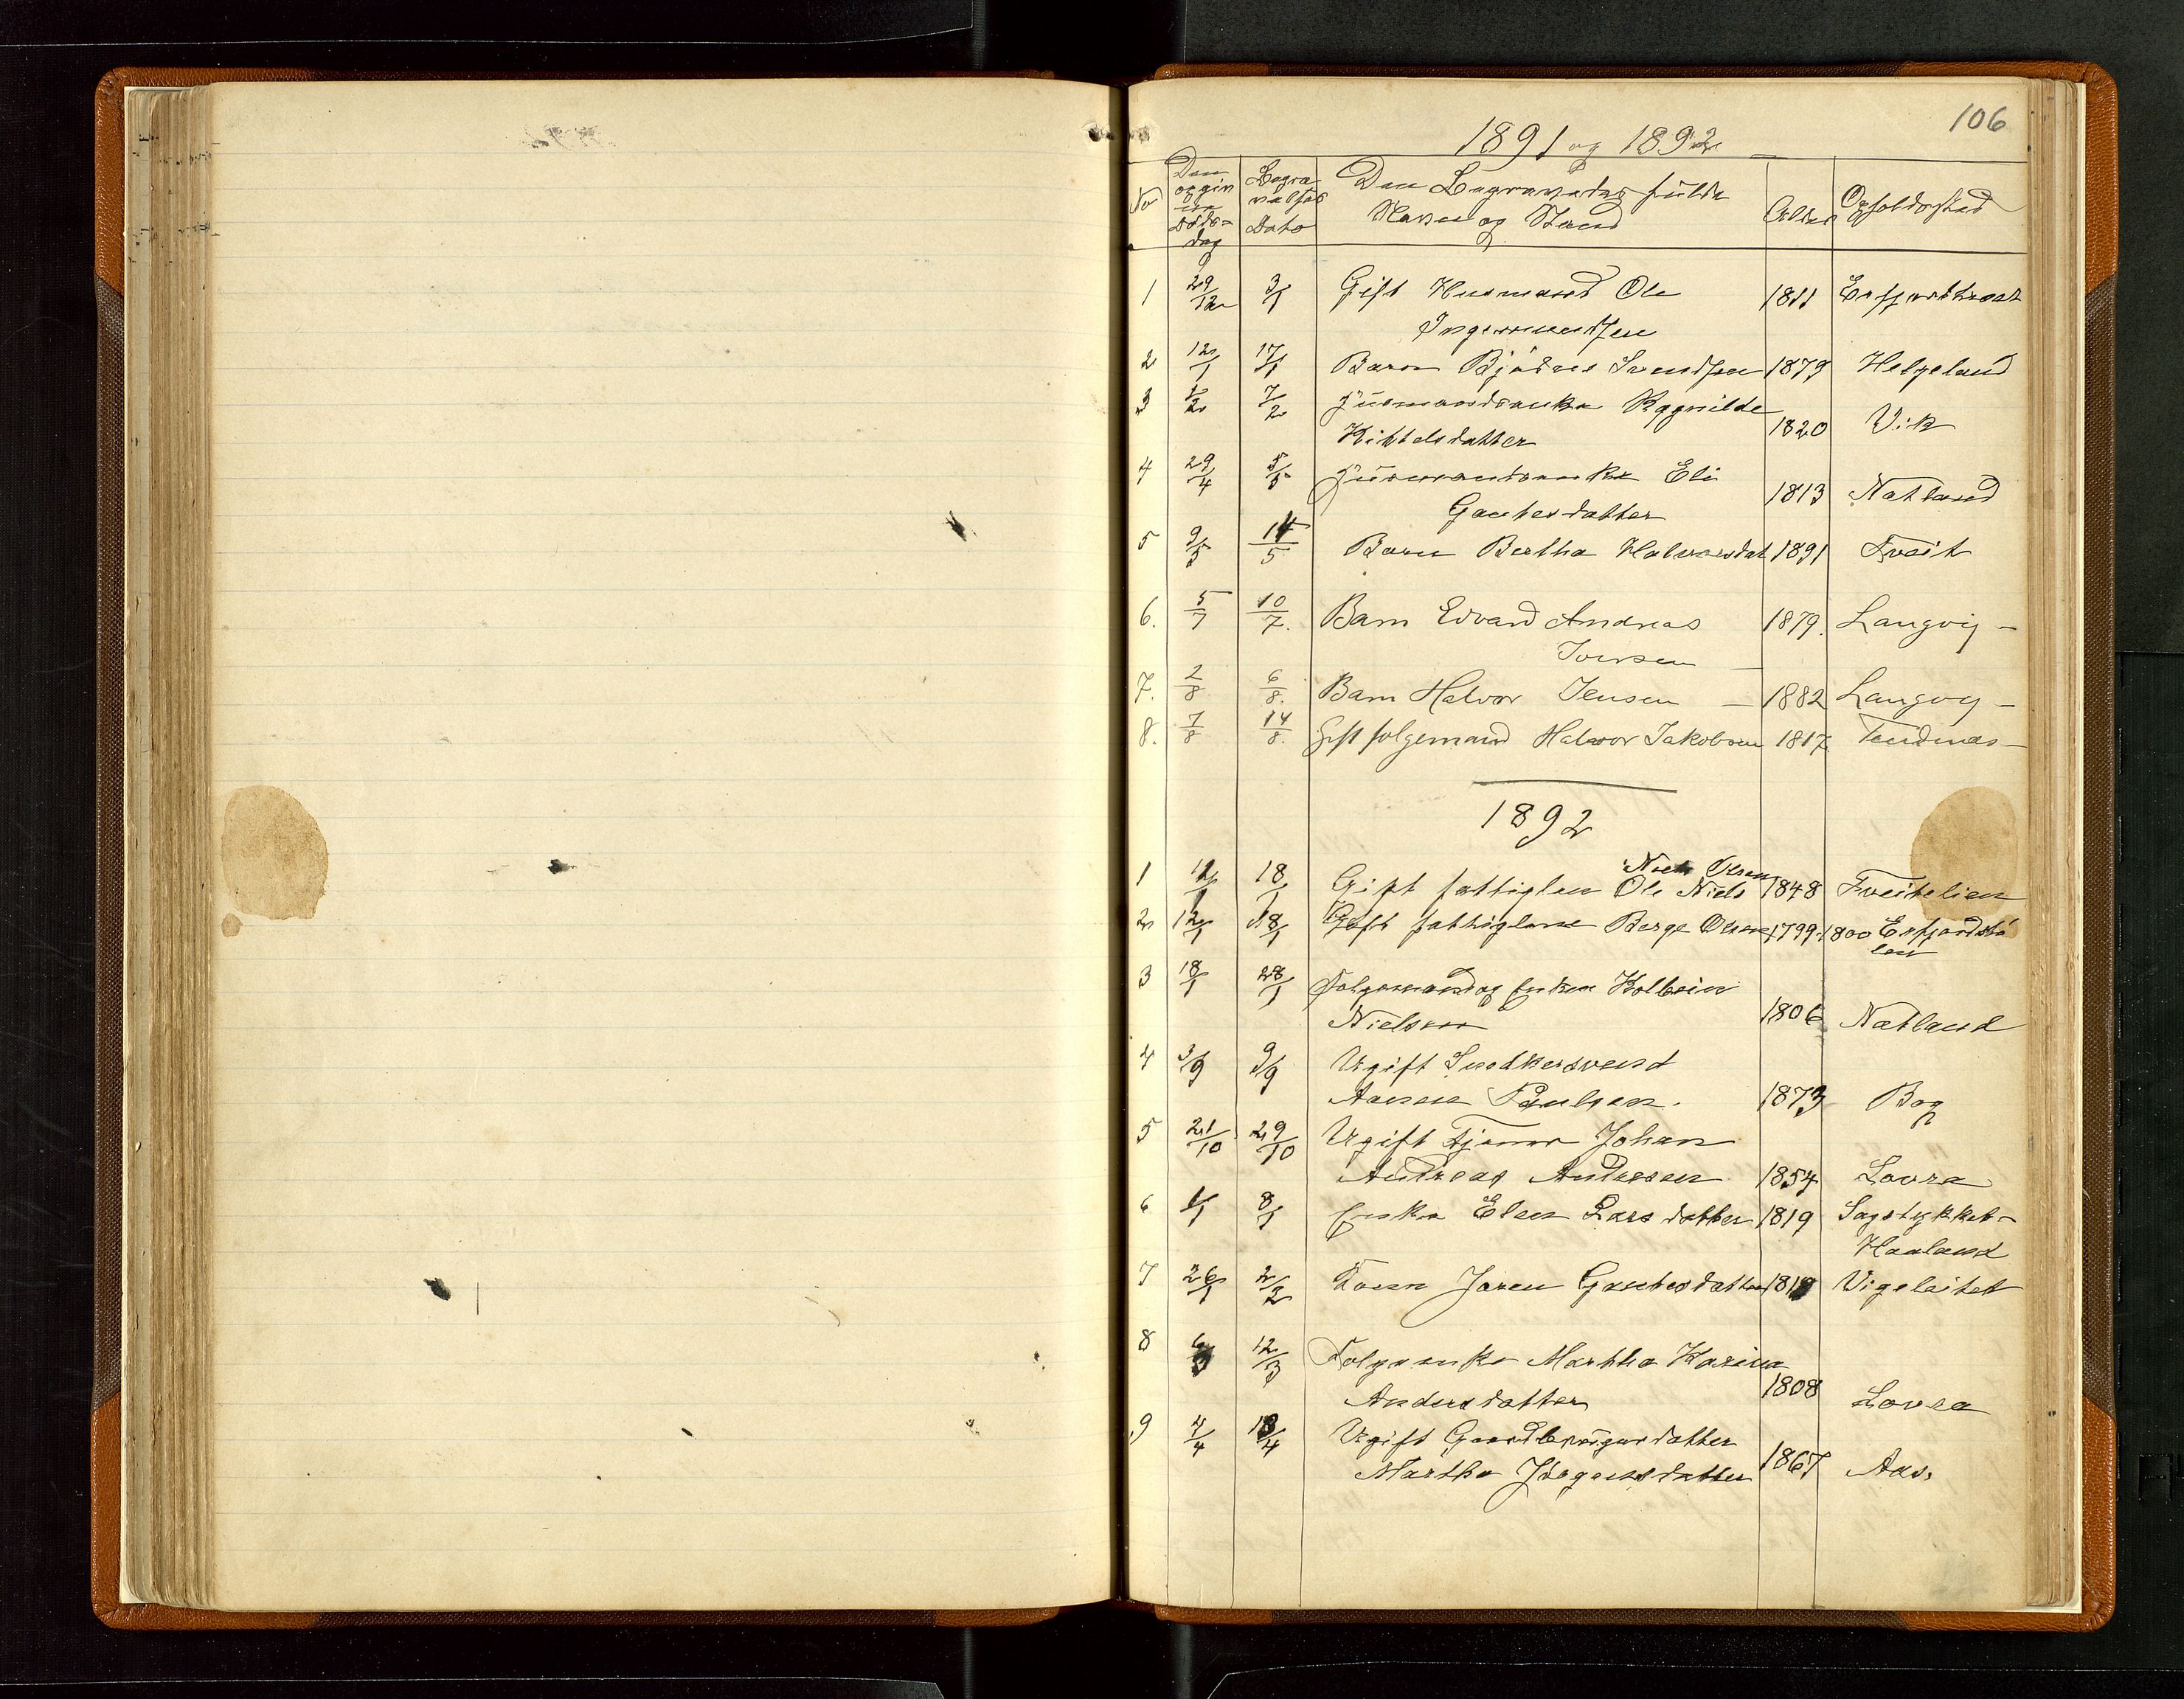 106
1891 og 1892
No Den opgivne Døds-dag Begravelses Dato Den Begravedes fulde Navn og Stand Alder Opholdssted
1 29/12 3/1 Gift Husmand Ole 1811
Ingemundsen
2 12/1 17/1 Barn Svendsen 1879 Helgeland
3 1/2 7/2 Husmandsenke Ragnilde
Kittelsdatter 1820 Vik
4 29/4 5/5 Husmandsenke Eli
Gautesdatter 1813 Natland
5 9/5 14/5 Barn Bertha Halvorsdat 1891 Tveit
6. 5/7 10/7. Barn Edvard Andreas 1879. Langvig –
Iversen –
7. 2/8 6/8. Barn Halvor Jensen – 1882 Langvig –
8. 7/8 14/8. Gift folgemand Halvor Jakobsen 1817 –
1892
Niels Olsen
1 12/1 18/1 Gift fattiglem Ole Niels 1848 Tveitelien
2 12/1 18/1 Gift fattiglem Berge Olsen 1799-1800 Erfjordstølen
3 18/1 28/1 Folgemand og Enkem Kolbein
Nielsen 1806 Natland
4 3/9 9/9 Ugift Snedkersvend
Paulsen. 1873 Bog
5 21/10 29/10 Ugift Tjener Johan
Andreas Andresen 1854 Lovra
6 1/1 8/1 Enke Elen Larsdatter 1819 Sagstykket–
Haaland
7 26/1 2/2 Joren Gautesdatter Vigeleitet
8 12/3 Folgeenke Martha Karina
Andersdatter 1808 Lovra
9 4/4 13/4 Ugift Gaardbrugerdatter
Martha Jørgensdatter 1867 Aas.